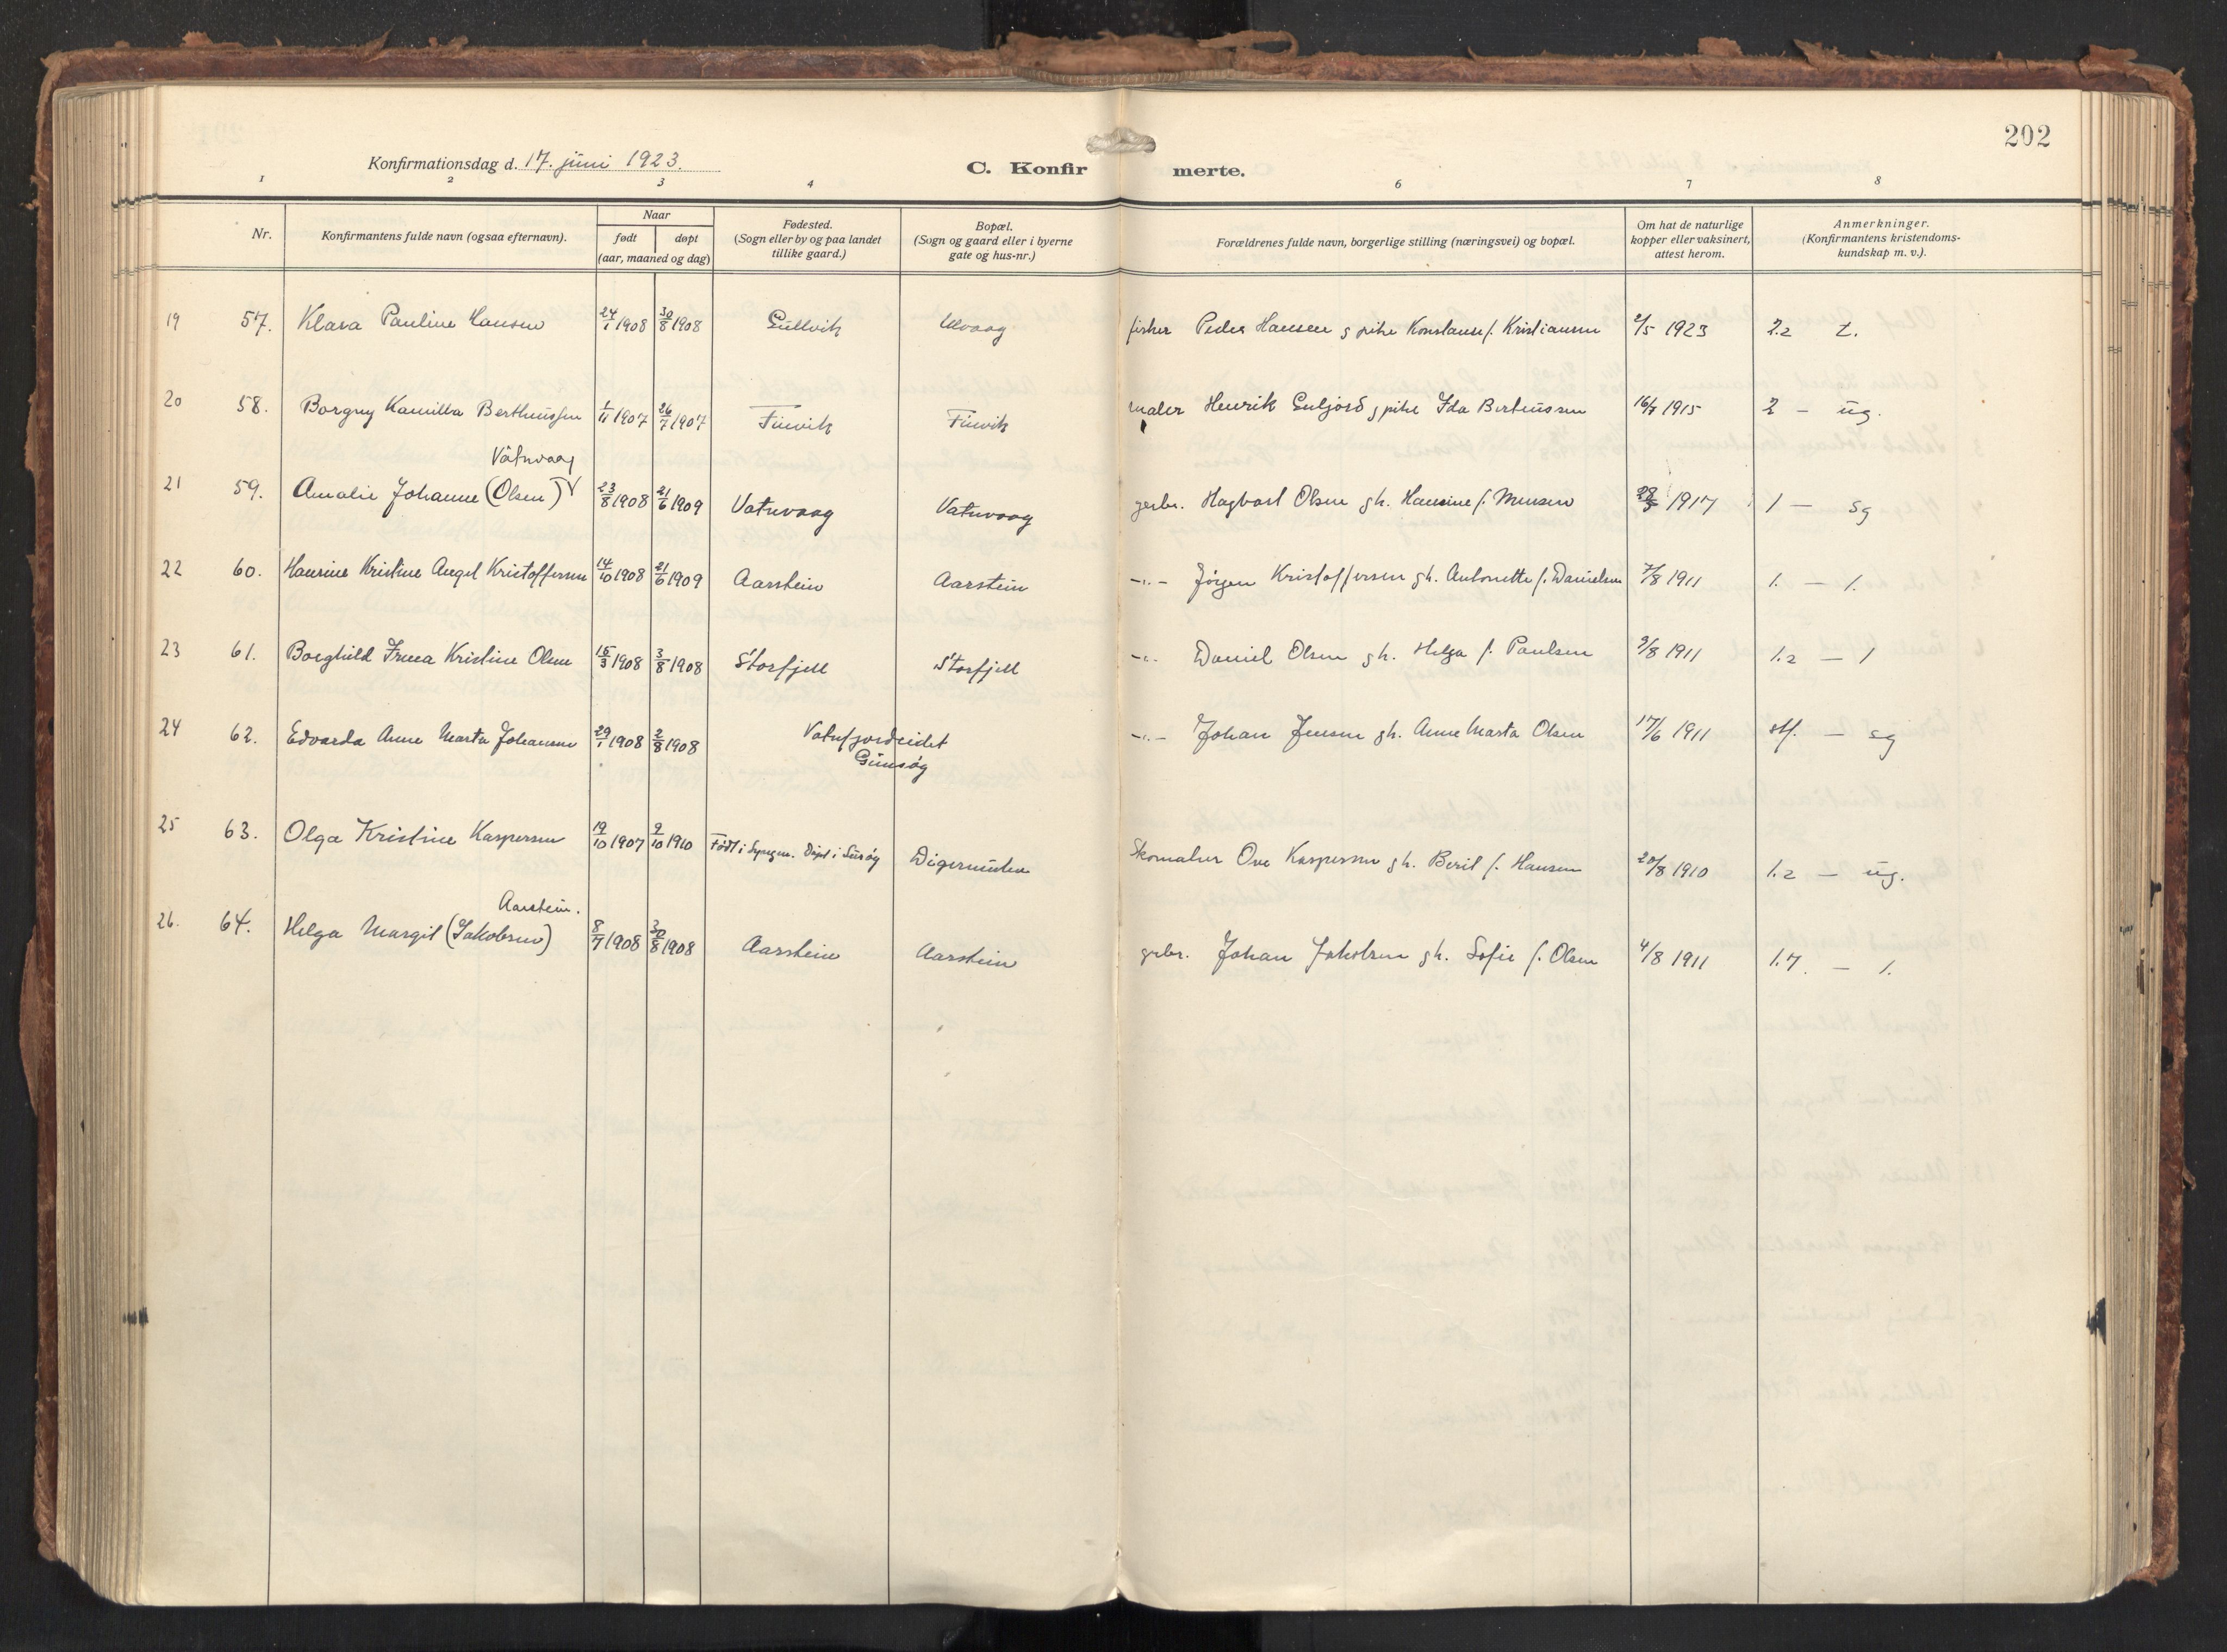 202
Konfirmationsdag d. 17. juni 1923.
C. Konfirmerte.
1 2 3 4 6 7 8
Nr.
Konfirmantens fulde navn (ogsaa efternavn).
Naar
født døpt
(aar, maaned og dag)
Fødested.
(Sogn eller by og paa landet
tillike gaard.)
Bopæl.
(Sogn og gaard eller i byerne
gate og hus-nr.)
Forældrenes fulde navn, borgerlige stilling (næringsvei) og bopæl.
Om hat de naturlige
kopper eller vaksinert,
attest herom.
Anmerkninger.
(Konfirmantens kristendoms-
kundskap m. v.).
19 57. Klara Pauline Hansen 24/1 1908 30/8 1908 Gullvik Ulvaag fisker Peder Hansen g pike Konstanse f. Kristiansen 2/5 1923 2.2 t.
20 58. Borgny Kamilla Berthinssen 1/11 1907 26/7 1907 Finvik Finvik maler Henrik Guljord g pike Ida Bertinssen 16/7 1915 2 – ug.
Vatnvaag
21 59. Amalie Johanne (Olsen) 23/8 1908 21/6 1909 Vatnvaag Vatnvaag grbr. Hagbart Olsen g h. Hansine f. Monsen 1917 1 – sg
22 60. Hansine Kristine Angel Kristoffersen 14/10 1908 21/6 1909 Aarstein Aarstein –"– Jörgen Kristoffersen g h. Antonette f. Danielsen 7/8 1911 1. – 1.
23 61. Borghild Irene Kristine Olsen 15/3 1908 3/8 1908 Storfjell Storfjell –"– Daniel Olsen g h. Helga f. Paulsen 3/8 1911 1.2 – 1
24 62. Edvarda Anne Marta Johansen 29/1 1908 2/8 1908 Vatnfjordeidet –"– Johan Jensen g h. Anne Marta Olsen 17/6 1911 – sg
25 63. Olga Kristine Kaspersen 19/10 1907 9/10 1910 Født i Döpt i Digermulen Skomaker Ove Kaspersen g h. Berit f. Hansen 20/8 1910 1.2 – ug.
Aarstein.
26. 64. Helga Margit (Jakobsen) 8/7 1908 30/8 1908 Aarstein Aarstein grbr. Johan Jakobsen g h. Sofie f. Olsen 4/8 1911 1.7 – 1.